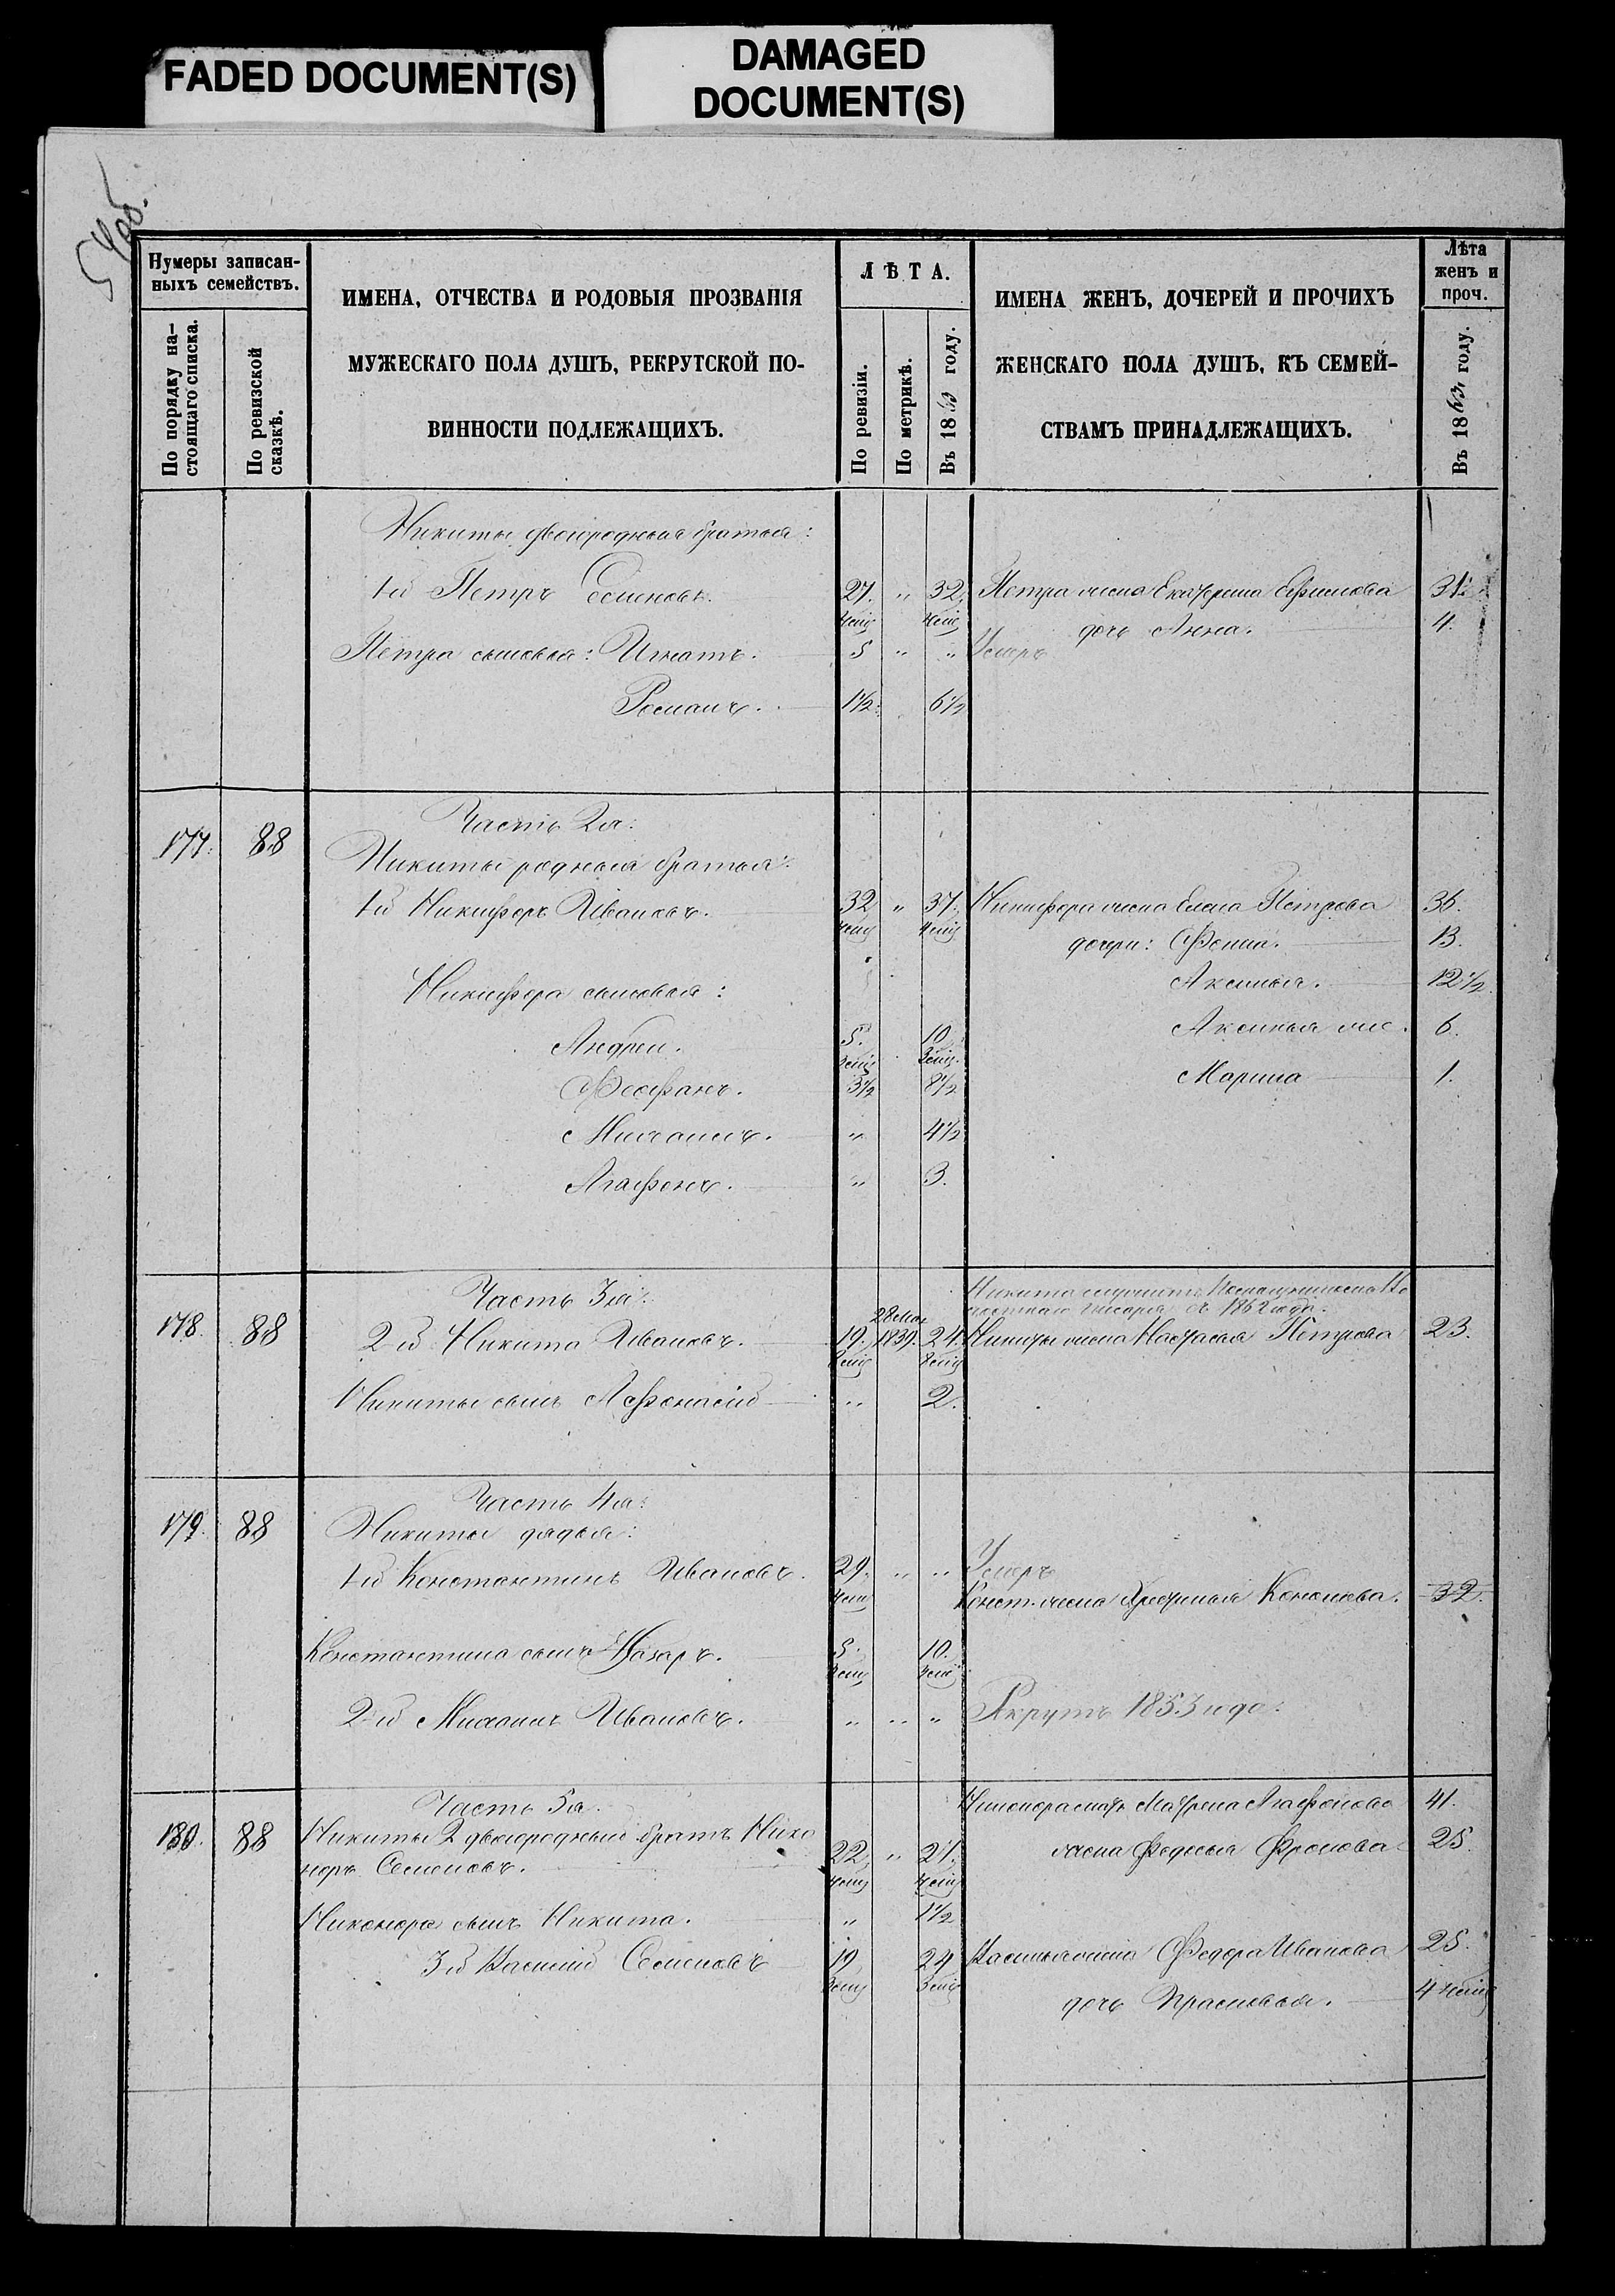 FADED DOCUMENT(S)
DAMAGED
DOCUMENT(S)
54 об.
Нумеры записан-
ныхъ семействъ.
По порядку на-
стоящаго списка.
По ревизской
сказкѣ.
ИМЕНА, ОТЧЕСТВА И РОДОВЫЯ ПРОЗВАНІЯ
МУЖЕСКАГО ПОЛА ДУШЪ, РЕКРУТСКОЙ ПО-
ВИННОСТИ ПОДЛЕЖАЩИХЪ.
ЛѢТА.
По ревизіи.
По метрикѣ.
Въ 1863 году.
ИМЕНА ЖЕНЪ, ДОЧЕРЕЙ И ПРОЧИХЪ
ЖЕНСКАГО ПОЛА ДУШЪ, КЪ СЕМЕЙ-
СТВАМЪ ПРИНАДЛЕЖАЩИХЪ.
Лѣта
женъ и
проч.
Въ 1863 году.
Никиты двоюродныя братья:
1й Петръ Семеновъ. 27. " 32. Петра жена Екатерина Ефимова 31.
дочь Анна. 4.
Петра сыновья: Игнатъ. 5 " " Умеръ
Романъ. 1½. 6½
Часть 2я:
177. 88
Никиты родныя братья:
1й Никифоръ Ивановъ. 32 " 37. Никифора жена Елена Петрова 36.
дочери: Фекла. 13.
Никифора сыновья: Аксинья. 12½
Аксинья же. 6.
Андрей. 5. 10
Марина 1.
Феофанъ. 3½ 8½
Михаилъ. " 4½
Агафонъ. " 3.
Часть 3я:
Никита
съ 1862 года.
28 Мая
178. 88 2й Никита Ивановъ. 19. 1839. 24. Никиты жена Настасья Петрова 23.
Никиты сынъ Афонасій " 2.
Часть 4я:
179. 88 Никиты дядья:
1й Константинъ Ивановъ. 29. " " Умеръ
Конст. жена Кононова. 32.
Константина сынъ Назаръ. 5. 10.
2й Михаилъ Ивановъ. " " " Рекрутъ 1853 года.
Часть 5я.
Никонора мать Матрена Агафонова 41.
180. 88 Никиты 2 двоюродный братъ Нико
норъ Семеновъ. 22 " 27. жена Федосья Фролова 25.
Никонора сынъ Никита. " 1½
3й Василій Семеновъ 19 24 Василья жена Федора Иванова 25.
дочь Прасковья. 4